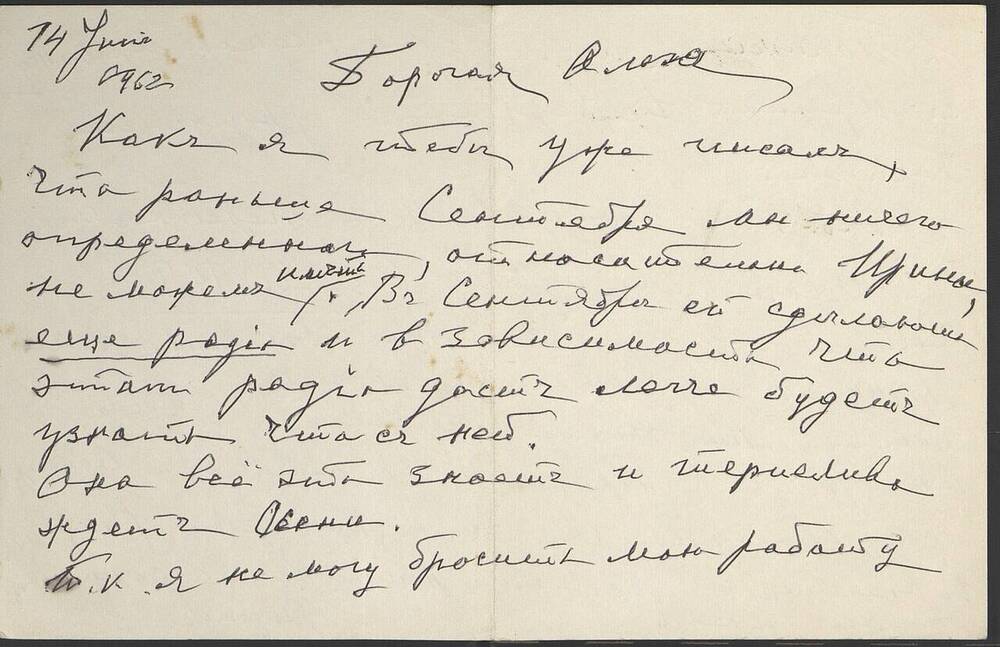 14 Juin
1962
Дорогая Алеха
Какъ я тебѣ уже писалъ,
что раньше Сентября мы ничего
определеннаго, относительно Ирины,
не можемъ имѣть. Въ Сентябрѣ ей сдѣлаютъ
еще радіо и в зависимости что
этотъ радіо дастъ легче будетъ
узнать что съ ней.
Она всё это знаетъ и терпеливо
ждетъ Осени.
Т.к. я не могу бросить мою работу